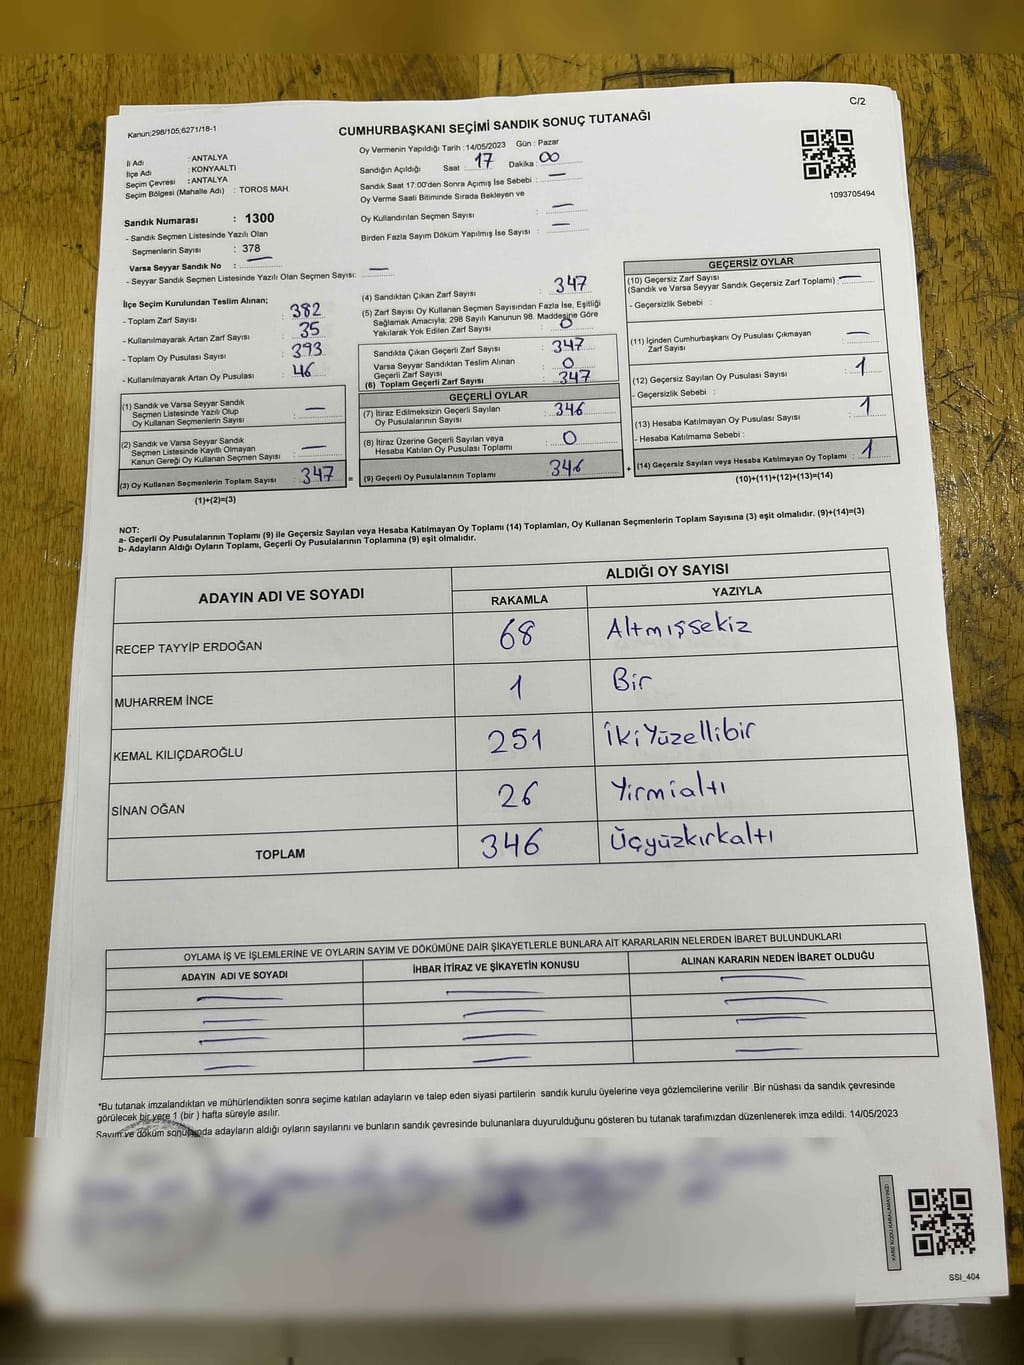 C/2
Kanun;298/105;6271/18-1
CUMHURBAŞKANI SEÇİMİ SANDIK SONUÇ TUTANAĞI
İl Adı : ANTALYA
İlçe Adı : KONYAALTI
Seçim Çevresi : ANTALYA
Seçim Bölgesi (Mahalle Adı) : TOROS MAH.
Oy Vermenin Yapıldığı Tarih : 14/05/2023 Gün : Pazar
Sandığın Açıldığı Saat : 17 Dakika : 00
Sandık Saat 17:00'den Sonra Açımış İse Sebebi : —
Oy Verme Saati Bitiminde Sırada Bekleyen ve
Oy Kullandırılan Seçmen Sayısı : —
Birden Fazla Sayım Döküm Yapılmış İse Sayısı : —
1093705494
Sandık Numarası : 1300
- Sandık Seçmen Listesinde Yazılı Olan
Seçmenlerin Sayısı : 378
Varsa Seyyar Sandık No : —
- Seyyar Sandık Seçmen Listesinde Yazılı Olan Seçmen Sayısı: —
İlçe Seçim Kurulundan Teslim Alınan;
- Toplam Zarf Sayısı : 382
- Kullanılmayarak Artan Zarf Sayısı : 35
- Toplam Oy Pusulası Sayısı : 393
- Kullanılmayarak Artan Oy Pusulası : 46
(1) Sandık ve Varsa Seyyar Sandık
Seçmen Listesinde Yazılı Olup
Oy Kullanan Seçmenlerin Sayısı : —
(2) Sandık ve Varsa Seyyar Sandık
Seçmen Listesinde Kayıtlı Olmayan
Kanun Gereği Oy Kullanan Seçmen Sayısı : —
(3) Oy Kullanan Seçmenlerin Toplam Sayısı : 347
(1)+(2)=(3)
(4) Sandıktan Çıkan Zarf Sayısı : 347
(5) Zarf Sayısı Oy Kullanan Seçmen Sayısından Fazla İse, Eşitliği
Sağlamak Amacıyla; 298 Sayılı Kanunun 98. Maddesine Göre
Yakılarak Yok Edilen Zarf Sayısı : 0
Sandıkta Çıkan Geçerli Zarf Sayısı : 347
Varsa Seyyar Sandıktan Teslim Alınan
Geçerli Zarf Sayısı : 0
(6) Toplam Geçerli Zarf Sayısı : 347
GEÇERLİ OYLAR
(7) İtiraz Edilmeksizin Geçerli Sayılan
Oy Pusulalarının Sayısı : 346
(8) İtiraz Üzerine Geçerli Sayılan veya
Hesaba Katılan Oy Pusulası Toplamı : 0
= (9) Geçerli Oy Pusulalarının Toplamı : 346
GEÇERSİZ OYLAR
(10) Geçersiz Zarf Sayısı
(Sandık ve Varsa Seyyar Sandık Geçersiz Zarf Toplamı) : —
- Geçersizlik Sebebi :
(11) İçinden Cumhurbaşkanı Oy Pusulası Çıkmayan
Zarf Sayısı : —
(12) Geçersiz Sayılan Oy Pusulası Sayısı : 1
- Geçersizlik Sebebi :
(13) Hesaba Katılmayan Oy Pusulası Sayısı : 1
- Hesaba Katılmama Sebebi :
+ (14) Geçersiz Sayılan veya Hesaba Katılmayan Oy Toplamı : 1
(10)+(11)+(12)+(13)=(14)
NOT:
a- Geçerli Oy Pusulalarının Toplamı (9) ile Geçersiz Sayılan veya Hesaba Katılmayan Oy Toplamı (14) Toplamları, Oy Kullanan Seçmenlerin Toplam Sayısına (3) eşit olmalıdır. (9)+(14)=(3)
b- Adayların Aldığı Oyların Toplamı, Geçerli Oy Pusulalarının Toplamına (9) eşit olmalıdır.
ADAYIN ADI VE SOYADI ALDIĞI OY SAYISI
RAKAMLA YAZIYLA
RECEP TAYYİP ERDOĞAN 68 Altmışsekiz
MUHARREM İNCE 1 Bir
KEMAL KILIÇDAROĞLU 251 İkiYüzellibir
SİNAN OĞAN 26 Yirmialtı
TOPLAM 346 Üçyüzkırkaltı
OYLAMA İŞ VE İŞLEMLERİNE VE OYLARIN SAYIM VE DÖKÜMÜNE DAİR ŞİKAYETLERLE BUNLARA AİT KARARLARIN NELERDEN İBARET BULUNDUKLARI
ADAYIN ADI VE SOYADI İHBAR İTİRAZ VE ŞİKAYETİN KONUSU ALINAN KARARIN NEDEN İBARET OLDUĞU
*Bu tutanak imzalandıktan ve mühürlendikten sonra seçime katılan adayların ve talep eden siyasi partilerin sandık kurulu üyelerine veya gözlemcilerine verilir .Bir nüshası da sandık çevresinde
görülecek bir yere 1 (bir ) hafta süreyle asılır.
Sayım ve döküm sonucunda adayların aldığı oyların sayılarını ve bunların sandık çevresinde bulunanlara duyurulduğunu gösteren bu tutanak tarafımızdan düzenlenerek imza edildi. 14/05/2023
KARE KODU KARALAMAYINIZ!
SSI_404